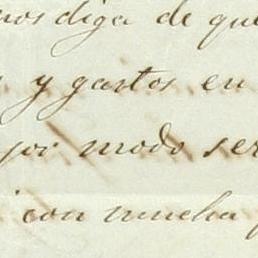 nos diga de que
y gastos en
por modo ser
con mucha